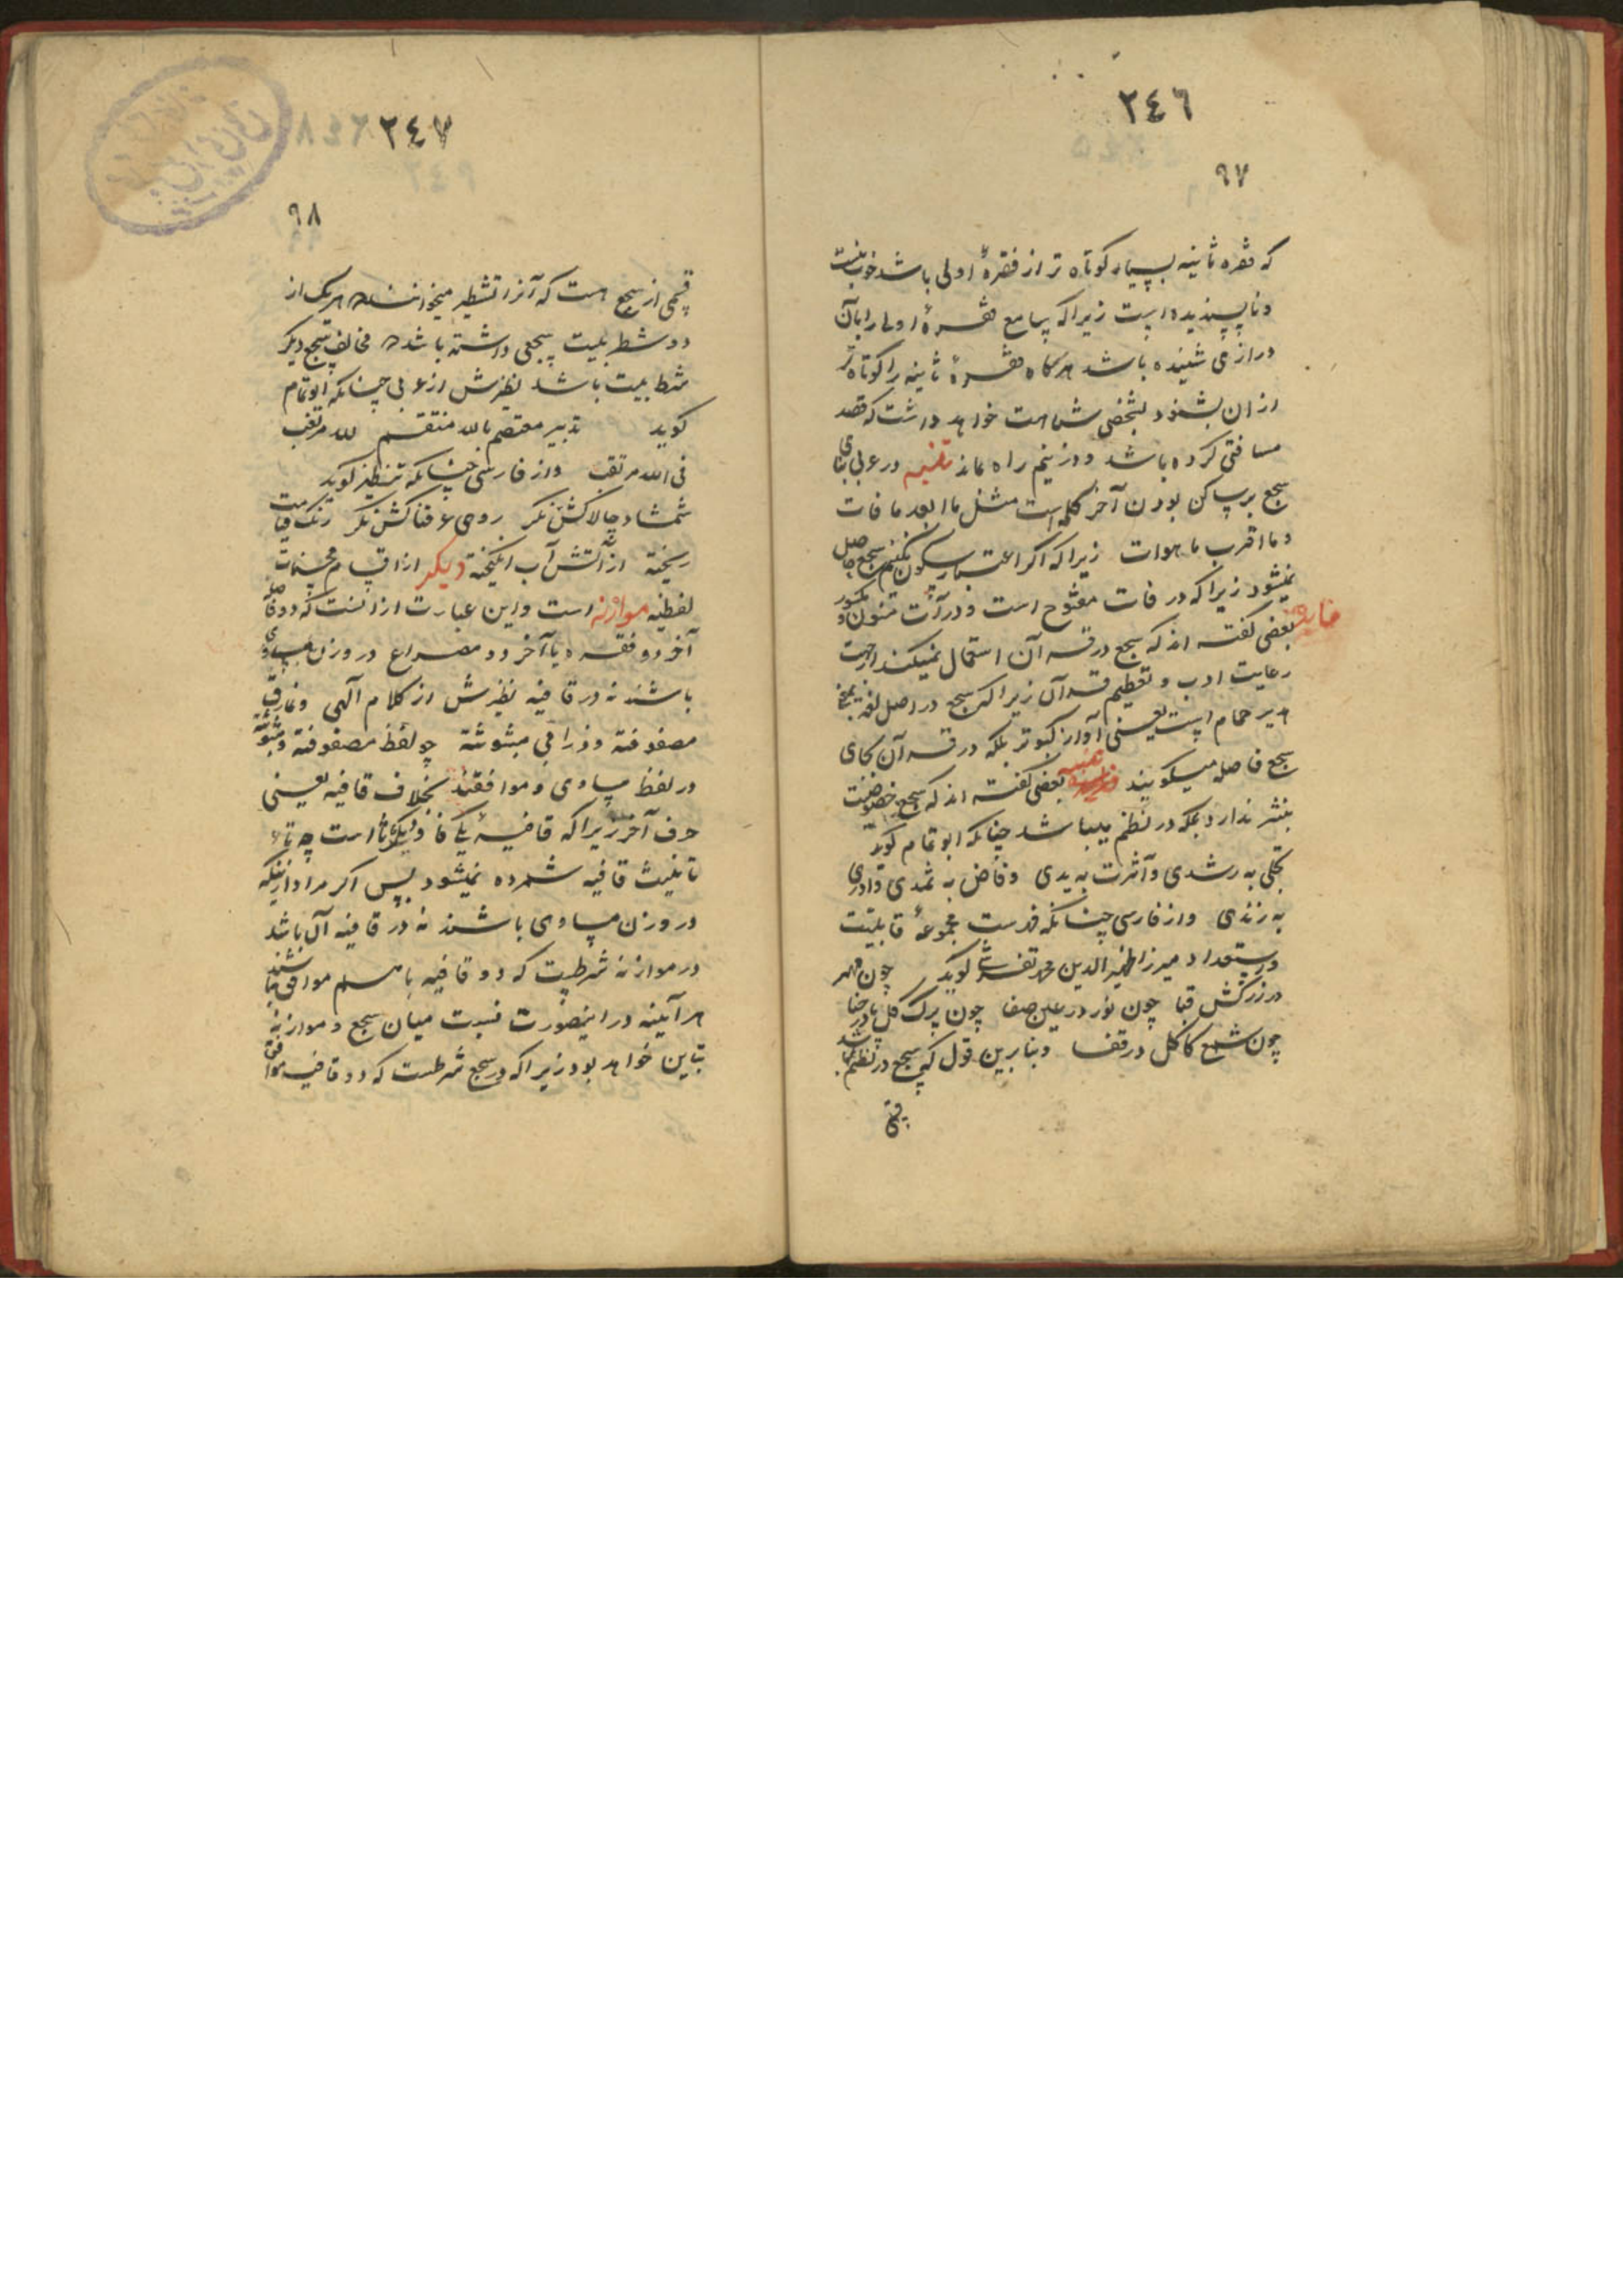 ٢٤٦
٩٧
که فقره ثانیه بسیار کوتاه تر از فقرهٔ اولی باشد خوب نیست
و ناپسندیده است زیرا که سامع فقرهٔ اولی را بآن
درازی شنیده باشد هرگاه فقرهٔ ثانیه را کوتاه تر
ازان بشنود بشخصی شباهت خواهد داشت که قصد
مسافتی کرده باشد و در نیم راه ماند تنبیه در عربی بنای
سجع بر ساکن بودن آخر کلمه است مثل ما ابعد ما فات
و ما اقرب ما هوات زیرا که اگر اعتبار سکون نکنیم سجع حاصل
نمیشود زیرا که در فات مفتوح است و در آت منون مکسور و
بعضی گفته اند که سجع در قرآن استعمال نمیکنند از جهت
رعایت ادب و تعظیم قرآن زیرا که سجع در اصل لغة بمعنی
هدیر حمام است یعنی آواز کبوتر بلکه در قرآن بجای
سجع فاصله میگویند تنبیه بعضی گفته اند که سجع خصوصیت
بنثر ندارد بلکه در نظم میباشد چنانکه ابو تمام گوید
تجلی به رشدی و آثرت به یدی و فاض به ثمدی و اوری
به زندی و از فارسی چنانکه فهرست مجموعهٔ قابلیت
و استعداد میرزا ظهیر الدین محمد تفرشی گوید چون مهر
در زرکش قبا چون نور در عین صفا چون برگ گل پا در حنا
چون شمع کاکل در قفا و بنا برین قول که سجع در نظم باشد
قسمی
٢٤٧
٩٨
قسمی از سجع هست که آنرا تشطیر میخوانند هر یک از
دو شطر بیت سجعی داشته باشد مخالف سجع دیگر
شطر بیت باشد نظیرش از عربی چنانکه ابو تمام
گوید تدبیر معتصم بالله منتقم لله مرتغب
فی الله مرتقب و از فارسی چنانکه نظیر گوید
شمشاد چالاکش نگر روحی عفناکش نگر رنگ قیامت
ریخته از آتش آب انگیخته دیگر از اقسام محسنات
لفظیه موازنه است و این عبارت ازانست که دو فاصله
آخر دو فقره یا آخر دو مصراع در وزن مساوی
باشند نه در قافیه نظیرش از کلام آلهی و نمارق
مصفوفة و زرابی مبثوثة چو لفظ مصفوفة و مبثوثة
در لفظ مساوی و موافقند بخلاف قافیه یعنی
حرف آخر زیرا که قافیهٔ یکی فا و دیگری ثا است چه تاء
تانیث قافیه شمرده نمیشود پس اگر مراد از اینکه
در وزن مساوی باشند نه در قافیه آن باشد
در موازنه شرطست که دو قافیه با هم موافق نباشند
هر آینه در اینصورت نسبت میان سجع و موازنه
تباین خواهد بود زیرا که در سجع شرطست که دو قافیه موافق